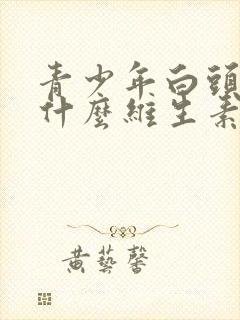 青少年白頭
什麼維生素
黃藝馨